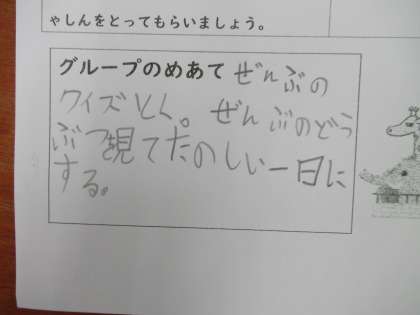 ゃしんをとってもらいましょう。
グループのめあて ぜんぶの
クイズとく。ぜんぶのどう
ぶつ観てたのしい一日に
する。